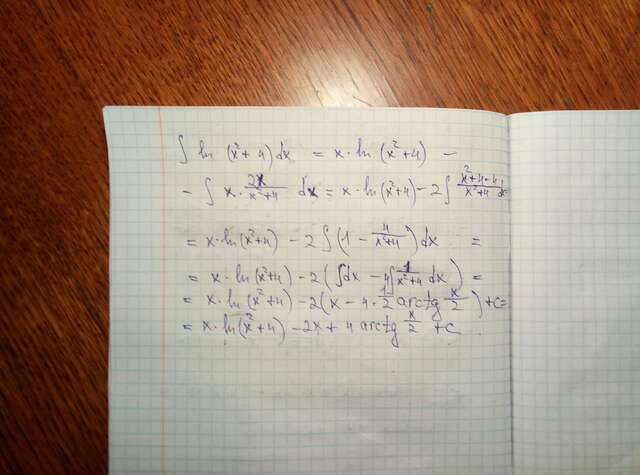 ∫ ln (x²+4)dx = x·ln (x²+4) −
− ∫ x· 2x/(x²+4) dx = x·ln(x²+4) − 2∫ (x²+4−4)/(x²+4) dx
= x·ln(x²+4) − 2∫(1 − 4/(x²+4))dx =
= x·ln(x²+4) − 2(∫dx − 4∫ 1/(x²+4) dx) =
= x·ln(x²+4) − 2(x − 4·1/2 arctg x/2) + c =
= x·ln(x²+4) − 2x + 4 arctg x/2 + c